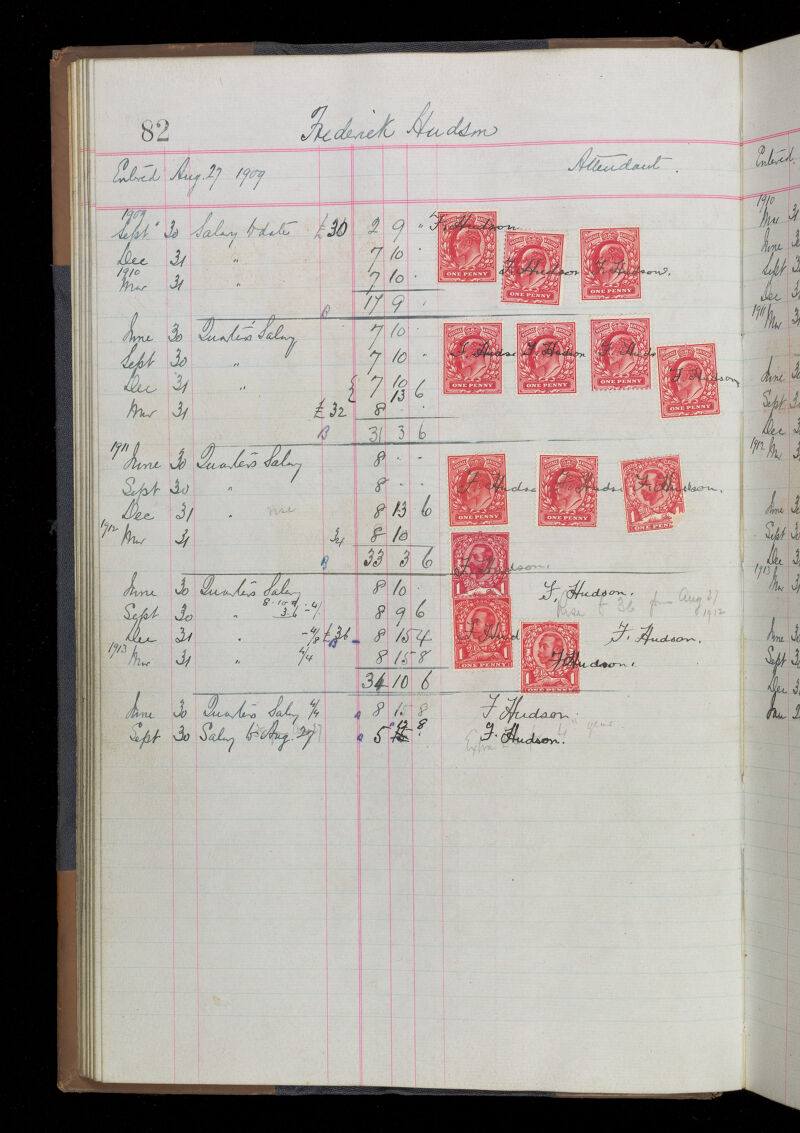 82 Frederick Hudson
Entered Aug. 27 1909 Attendant.
1909
Sept 30 Salary to date £30 2 9 " F. Hudson
Dec 31 " 7 10 . F. Hudson
1910
Mar 31 " 7 10 . F. Hudson.
17 9 .
June 30 Quarter's Salary 7 10 . F. Hudson
Sept 30 " 7 10 " F. Hudson
Dec 31 " { 7 10 F. Hudson
13 6
Mar 31 £32 8 . . F. Hudson
B 31 3 6
1911
June 30 Quarter's Salary 8 . . F. Hudson
Sept 30 " 8 . . F. Hudson
Dec 31 " rise 8 13 6 F. Hudson.
1912
Mar 31 34 8 10 F. Hudson.
B 33 3 6
June 30 Quarter's Salary 8 10 . F. Hudson.
8.10.0
Sept 30 " 3.6 -4/. 8 9 6 F. Hud
Rise to 36 from Aug 27 1912
Dec 31 " -4/8 £36 8 15 4 F. Hudson.
1913
Mar 31 " 4/4 8 15 8 F. Hudson.
34 10 6
June 30 Quarter's Salary 4/4 8 15 8 F. Hudson.
Sept 30 Salary to Aug. 27 5 12 8 F. Hudson.
Extra 4th year
ONE PENNY
ONE PENNY
ONE PENNY
ONE PENNY
ONE PENNY
ONE PENNY
ONE PENNY
ONE PENNY
ONE PENNY
1 ONE PENN
1 1
1 ONE PENNY 1
1 ONE PENNY 1
Entered.
1910
Mar 31
June 30
Sept 30
Dec 31
1911
Mar 31
June 30
Sept 30
Dec 31
1912
Mar 31
June 30
Sept 30
Dec 31
1913
Mar 31
June 30
Sept 30
Dec 31
Mar 31